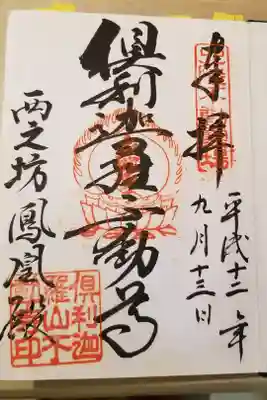 奉拝
平成十二年
九月十三日
倶利迦羅不動尊
西之坊鳳凰殿
倶利迦
羅山不
動印